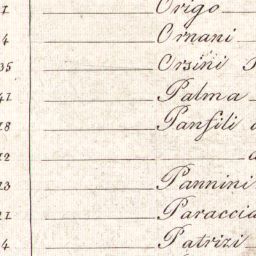 Origo
4 Ornani
35 Orsini
41 Palma
18 Panfili
12
13 Pannini
21 Paraccia
4 Patrizi